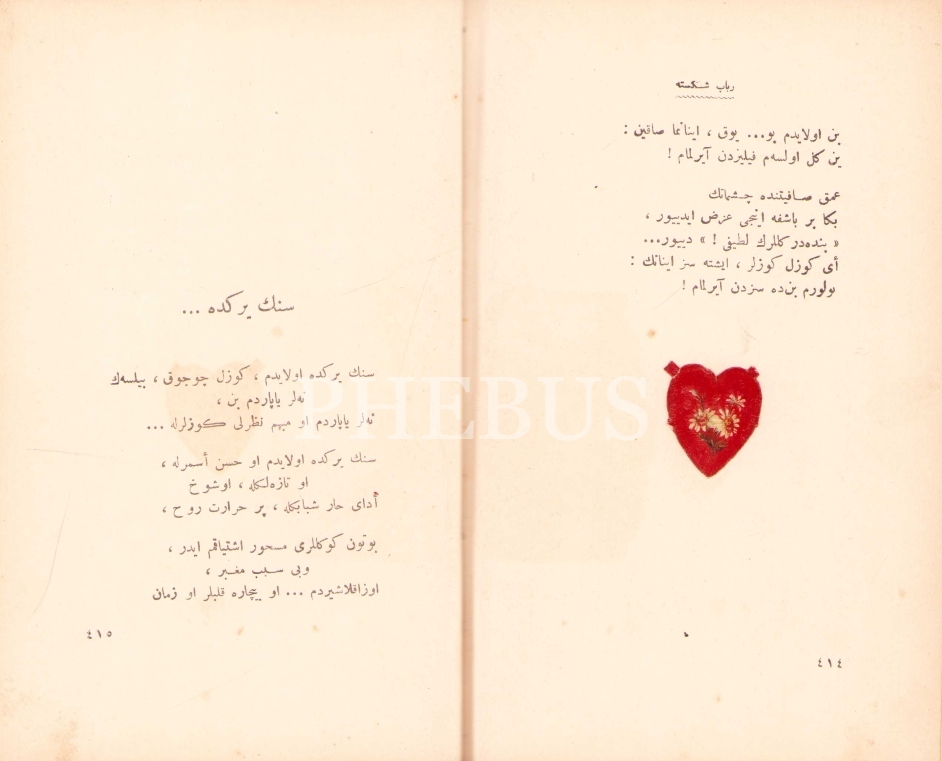 رباب شكسته
بن اولايدم بو... يوق ، اينانما صاقين :
بن كل اولسه م فيليزدن آيرلمام !
عمق صافيتنده چشمانك
بكا بر باشقه اينجى عرض ايدييور ،
« بنده در كللرك لطيفى ! » دييور...
أى كوزل كوزلر ، ايشته سز اينانك :
بولورم بن ده سزدن آيرلمام !
٤١٤
سنك يركده ...
سنك يركده اولايدم ، كوزل چوجوق ، بيلسه ك
نه لر ياپاردم بن ،
نه لر ياپاردم او مبهم نظرلى كوزلرله ...
سنك يركده اولايدم او حسن أسمرله ،
او تازه لكله ، او شوخ
أداى حار شبابكله ، پر حرارت روح ،
بوتون كوكللرى مسحور اشتياقم ايدر ،
وبى سبب مغبر ،
اوزاقلاشيردم ... او بيچاره قلبلر او زمان
٤١٥
PHEBUS